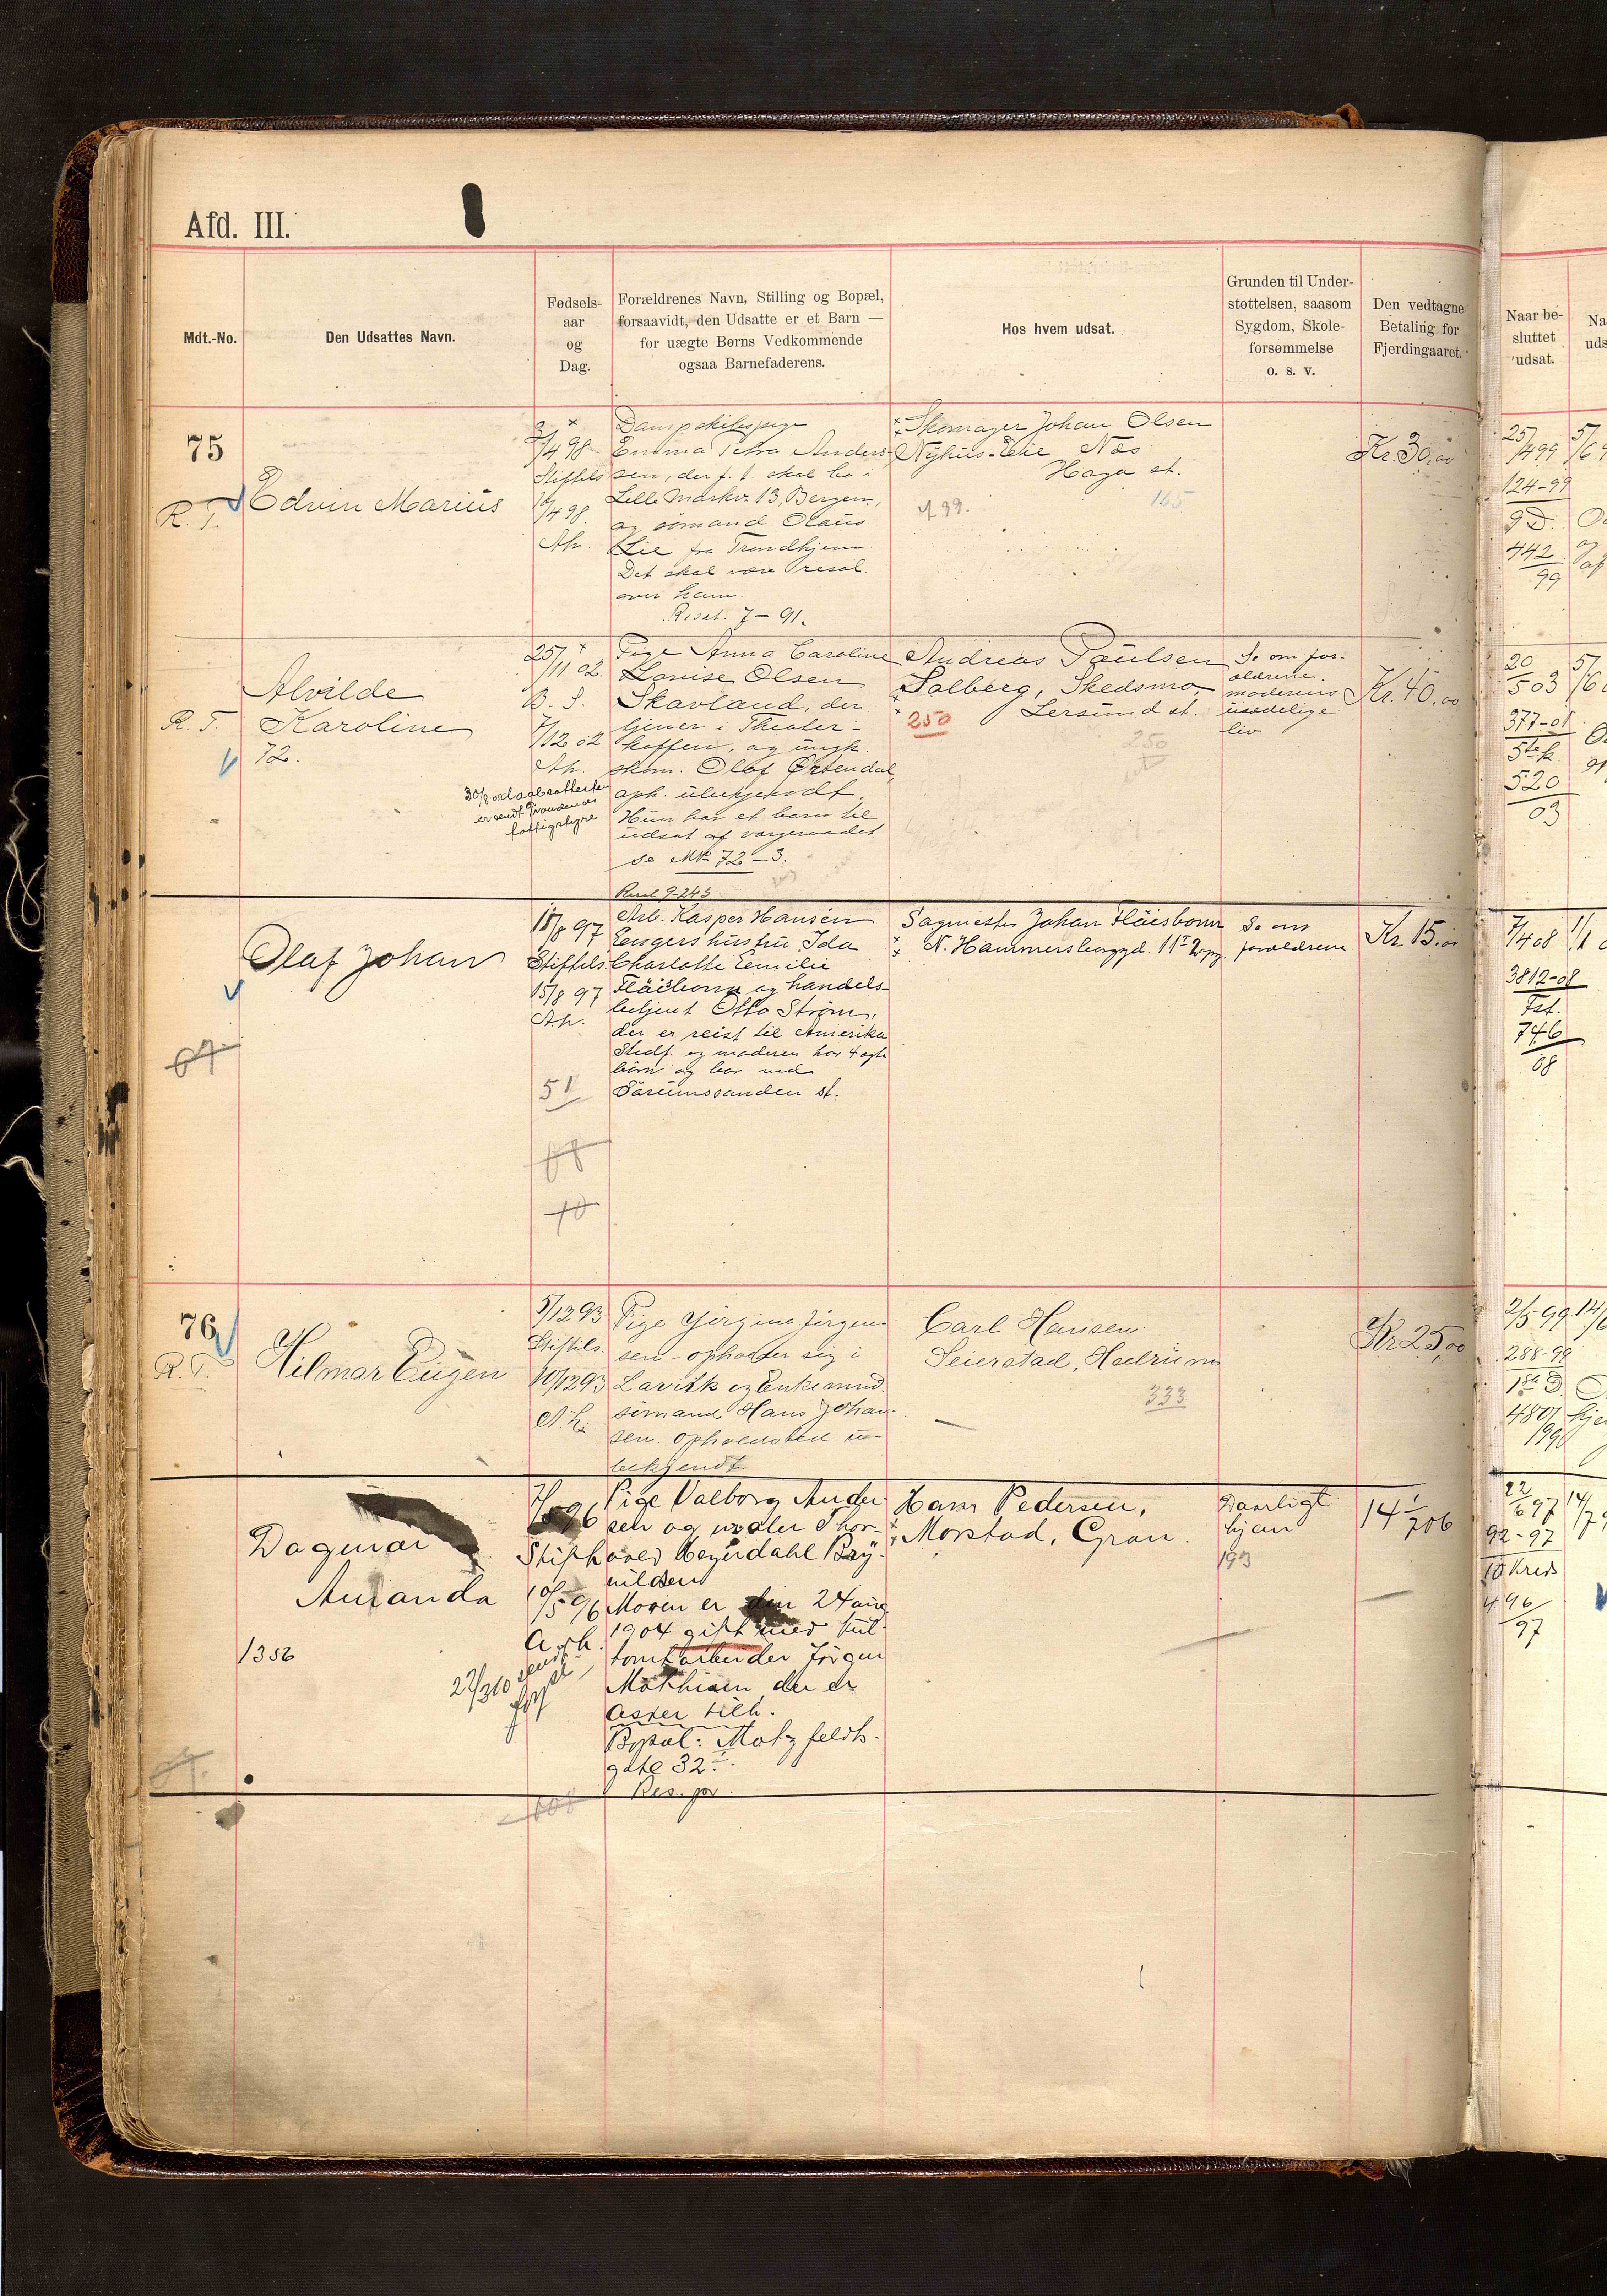 Afd. III.
Mdt.-No.
Den Udsattes Navn.
Fødsels-
aar
og
Dag.
Forældrenes Navn, Stilling og Bopæl,
forsaavidt, den Udsatte er et Barn —
for uægte Børns Vedkommende
ogsaa Barnefaderens.
Hos hvem udsat.
Grunden til Under-
støttelsen, saasom
Sygdom, Skole-
forsømmelse
o. s. v.
Den vedtagne
Betaling for
Fjerdingaaret.
Naar be-
sluttet
udsat.
Na
uds
75
R. T.
Edvin Marius
4 98
Stiftels
4 98
Ah.
Dampskibspige
Emma Petra Anders
sen, der f. t. skal bo i
Lille Markv. 13, Bergen,
og sømand Olaus
Lie fra Trondhjem.
Det skal være resol.
over ham.
Resol. 7 - 91.
Skomager Johan Olsen
Nykus-Eie Nes
Haga st.
165
Kr. 30,00
25/4 99
124-99
9 D.
442
99
Alvilde
R. T. Karoline
72.
25/11 02
B. S.
7/12 02
Ah.
Pige Anna Caroline
Lovise Olsen
Skavland, der
tjener i Theater-
kaffen, og ungk.
skom. Olaf Ørtendal,
oph. ubekjendt.
Hun har et barn til
udsat af vergeraadet
se Mk 72-3.
Andreas Paulsen
Solberg, Skedsmo,
Lersund st.
250
250
Se om for-
ældrene.
moderens
usædelige
liv
Kr. 40,00
20/5 03
377-01
5te k.
520
03
Resol 9-243
Olaf Johan
15/8 97
Stiftels
15/8 97
Ah.
51
Arb. Kasper Hansen
Engers hustru Ida
Charlotte Emilie
Fläisbonn og handels-
betjent Otto Strøm,
der er reist til Amerika
Stedf. og moderen har 4 ægte
børn og bor ved
Sørumssanden st.
Sagmester Johan Fläisbonn
N. Hammersborggd. 11 I opg.
Se om
forældrene
Kr. 15,00
7/4 08
3812-08
Fst.
746
08
76
R. T.
Hilmar Eugen
5/12 93
Stiftels.
10/12 93
A. h.
Pige Jørgine Jørgen-
sen - opholder sig i
Larvik og Enkemnd.
sømand Hans Johan-
sen. Opholdsted u-
bekjendt.
Carl Hansen
Seierstad, Hedrum
333
Kr 25,00
2/5-99
288-99
1ste D.
480
Dagmar
Amanda
1356
7/5 96
Stift
10/5 96
a. h.
Pige Valborg Ander
sen og maler Thor-
vald Heyerdahl Bry-
nildsen
Moren er den 24 aug
1904 gift med tul-
tomtarbeider Jørgen
Mathisen, der er
Asker tilh.
Bopæl: Motzfeldts-
gate 32 I.
Hans Pedersen,
Morstad, Gran.
Daarligt
hjem
193
14 1/7 06
22/6 97
92-97
10 Kreds
496
97